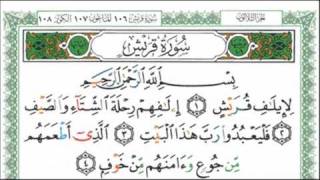 الجزء الثلاثون سورة قريش ١٠٦ الماعون ١٠٧ الكوثر ١٠٨
سُورَةُ قُرَيْشٍ
بِسْمِ ٱللَّهِ ٱلرَّحْمَٰنِ ٱلرَّحِيمِ
لِإِيلَٰفِ قُرَيْشٍ ١ إِۦلَٰفِهِمْ رِحْلَةَ ٱلشِّتَآءِ وَٱلصَّيْفِ
٢ فَلْيَعْبُدُوا۟ رَبَّ هَٰذَا ٱلْبَيْتِ ٣ ٱلَّذِىٓ أَطْعَمَهُم
مِّن جُوعٍ وَءَامَنَهُم مِّنْ خَوْفٍۭ ٤